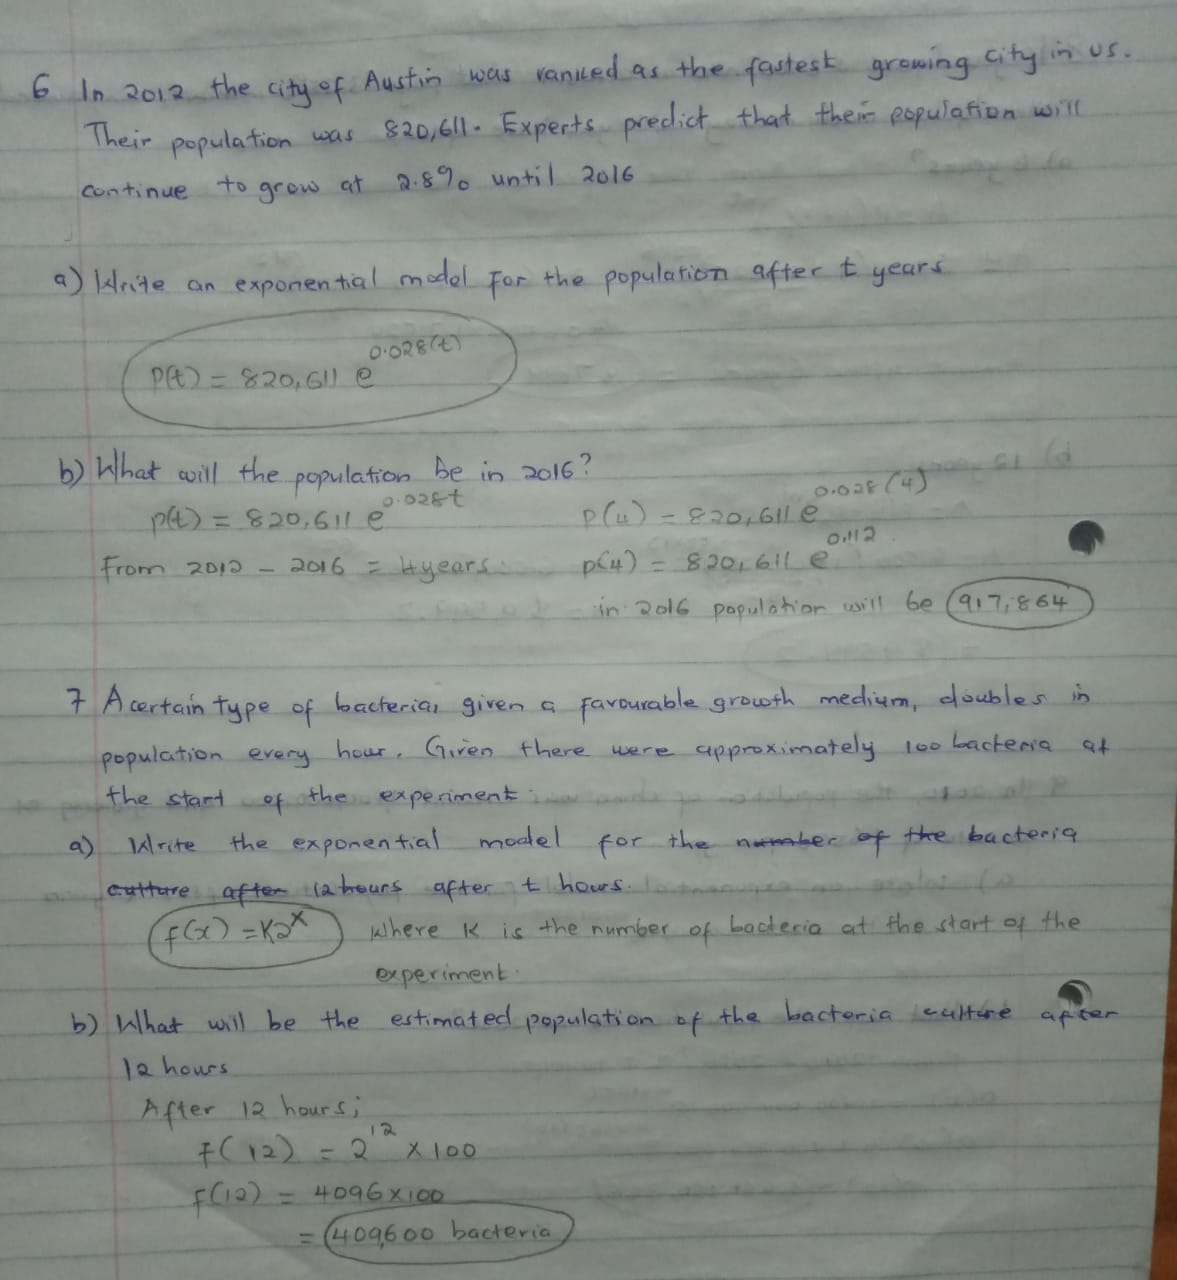 6 In 2012 the city of Austin was ranked as the fastest growing city in US.
Their population was 820,611. Experts predict that their population will
continue to grow at 2.8% until 2016
a) Write an exponential model for the population after t years
P(t) = 820,611 e^0.028(t)
b) What will the population be in 2016?
P(t) = 820,611 e^0.028t P(4) = 820,611 e^0.028(4)
From 2012 - 2016 = 4years. P(4) = 820,611 e^0.112
in 2016 population will be 917,864
7 A certain type of bacteria, given a favourable growth medium, doubles in
population every hour. Given there were approximately 100 bacteria at
the start of the experiment.
a) Write the exponential model for the number of the bacteria
culture after 12 hours after t hours.
f(x) = K2^x where K is the number of bacteria at the start of the
experiment.
b) What will be the estimated population of the bacteria culture after
12 hours
After 12 hours;
f(12) = 2^12 × 100
f(12) = 4096 × 100
= 409,600 bacteria